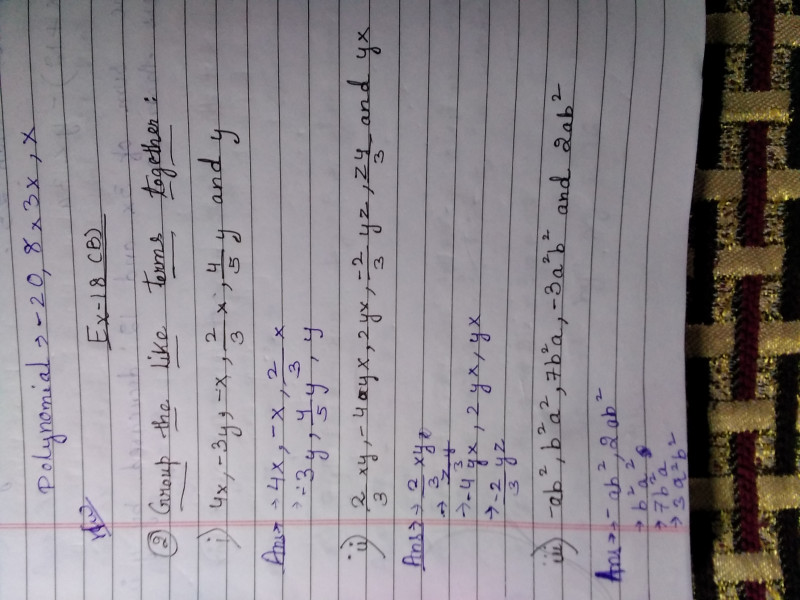 Polynomial → -20, 8x3x, x
Ex-18 (B)
② Group the like terms together:
i) 4x, -3y, -x, 2/3 x, 4/5 y and y
Ans → → 4x, -x, 2/3 x
→ -3y, 4/5 y, y
ii) 2/3 xy, -4yx, 2yx, -2/3 yz, zy/3 and yx
Ans → → 2/3 xy
→ zy/3
→ -4yx, 2yx, yx
→ -2/3 yz
iii) -ab², b²a², 7b²a, -3a²b² and 2ab²
Ans → → -ab², 2ab²
→ b²a²
→ 7b²a
→ 3a²b²